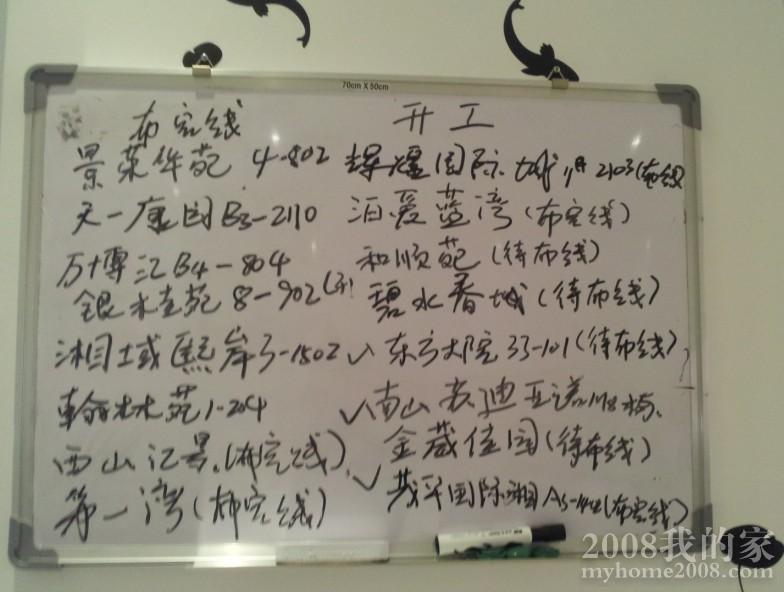 70cm X 50cm
布完线
景荣华苑 4-802
天一康园B3-2110
万博汇B4-804
银桂苑 8-902
湘域熙岸3-1502
翰林苑1-204
西山汇景(布完线)
第一湾(布完线)
开工
辉煌国际城 2103(布线
泊爱蓝湾(布完线)
和顺苑(待布线)
碧水香城(待布线)
√ 东方大院 33-101(待布线)
√ 南山苏迪亚诺118栋
金葳佳园(待布线)
√ 共和国际湘 A5-(布完线)
2008我的家
myhome2008.com